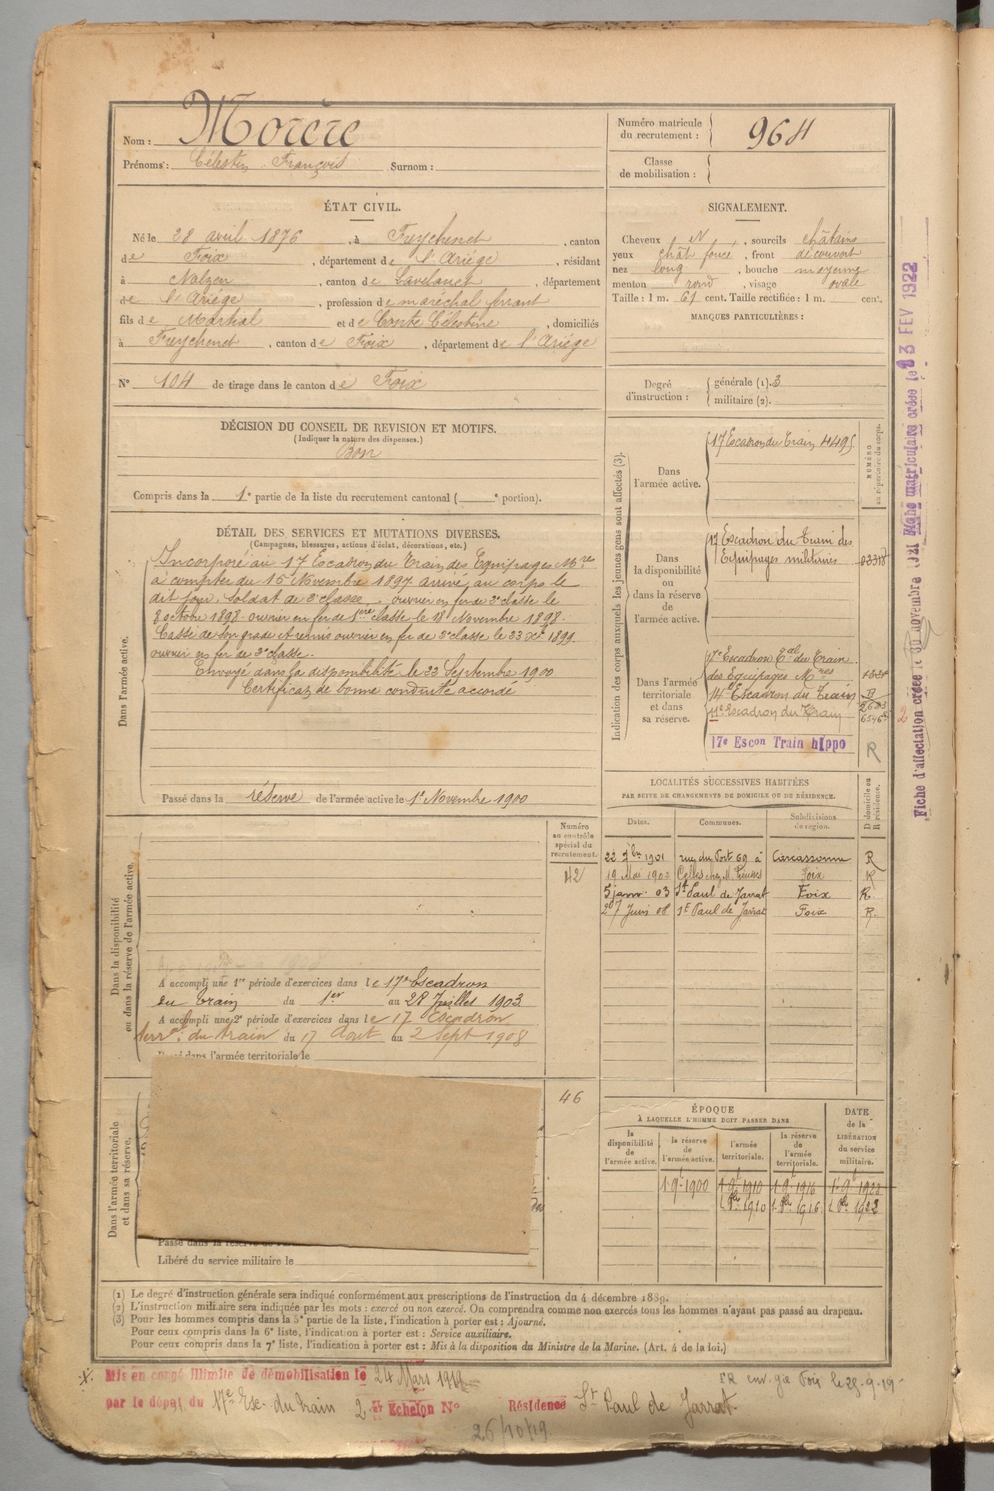 Nom : Morère
Prénoms : Célestin François Surnom :
Numéro matricule du recrutement : 964
Classe de mobilisation :
ÉTAT CIVIL.
Né le 28 avril 1876, à Freychenet, canton
de Foix, département de l'Ariège, résidant
à Nalzen, canton de Lavelanet, département
de l'Ariège, profession de maréchal ferrant
fils de Martial et de Conte Célestine, domiciliés
à Freychenet, canton de Foix, département de l'Ariège
N° 104 de tirage dans le canton de Foix
SIGNALEMENT.
Cheveux N, sourcils châtains
yeux chât foncé, front découvert
nez long, bouche moyenne
menton rond, visage ovale
Taille : 1 m. 61 cent. Taille rectifiée : 1 m. cent.
MARQUES PARTICULIÈRES :
Degré d'instruction : générale (1). 3
militaire (2).
DÉCISION DU CONSEIL DE REVISION ET MOTIFS.
(Indiquer la nature des dispenses.)
Bon
Compris dans la 1e partie de la liste du recrutement cantonal ( e portion).
DÉTAIL DES SERVICES ET MUTATIONS DIVERSES.
(Campagnes, blessures, actions d'éclat, décorations, etc.)
Dans l'armée active.
Incorporé au 17 Escadron du Train des Equipages Mres
à compter du 15 Novembre 1897 arrivé au corps le
dit jour. Soldat de 2e classe. ouvrier en fer de 2e classe le
8 octobre 1898. ouvrier en fer de 1ere classe le 18 Novembre 1898.
Cassé de son grade et remis ouvrier en fer de 2e classe le 23 Xbre 1899
ouvrier en fer de 2e classe.
Envoyé dans la disponibilité le 22 Septembre 1900
Certificat de bonne conduite accordé
Passé dans la réserve de l'armée active le 1er Novembre 1900
Indication des corps auxquels les jeunes gens sont affectés (3).
NUMÉRO au répertoire du corps.
Dans l'armée active.
17 Escadron du Train 4495
Dans la disponibilité ou dans la réserve de l'armée active.
17 Escadron du Train des
Equipages militaires
Dans l'armée territoriale et dans sa réserve.
17e Escadron Tal du Train
des Equipages Mres
14e Escadron du Train
11e Escadron du Train
17e Escon Train hippo
R
LOCALITÉS SUCCESSIVES HABITÉES
PAR SUITE DE CHANGEMENTS DE DOMICILE OU DE RÉSIDENCE.
Dates. Communes. Subdivisions de région. D domicile ou R résidence.
22 1901 rue du Port 69 à Carcassonne R
19 Mai 1902 Celles chez M. Foix R
5 janv 03 St Paul de Jarrat Foix R
27 Juin 08 St Paul de Jarrat Foix R
Numéro au contrôle spécial du recrutement.
42
Dans la disponibilité ou dans la réserve de l'armée active.
A accompli une 1re période d'exercices dans le 17e Escadron
du train du 1er au 28 Juillet 1903
A accompli une 2e période d'exercices dans le 17 Escadron
terral du train du 17 Aout au 2 Sept 1908
Passé dans l'armée territoriale le
Dans l'armée territoriale et dans sa réserve.
46
Libéré du service militaire le
ÉPOQUE
À LAQUELLE L'HOMME DOIT PASSER DANS
la disponibilité de l'armée active. la réserve de l'armée active. l'armée territoriale. la réserve de l'armée territoriale.
DATE de la LIBÉRATION du service militaire.
1.9bre 1900 1.9bre 1910 1.9bre 1916 1.9bre 1922
1910 1916 1922
(1) Le degré d'instruction générale sera indiqué conformément aux prescriptions de l'instruction du 4 décembre 1889.
(2) L'instruction militaire sera indiquée par les mots : exercé ou non exercé. On comprendra comme non exercés tous les hommes n'ayant pas passé au drapeau.
(3) Pour les hommes compris dans la 5e partie de la liste, l'indication à porter est : Ajourné.
Pour ceux compris dans la 6e liste, l'indication à porter est : Service auxiliaire.
Pour ceux compris dans la 7e liste, l'indication à porter est : Mis à la disposition du Ministre de la Marine. (Art. 4 de la loi.)
Mis en congé illimité de démobilisation le 24 Mars 1919
par le dépôt du 17e Esc. du train 2e Echelon N° Résidence St Paul de Jarrat
26/10/19
Foix le 25-9-19
Fiche d'affectation créée le 30 novembre 1921
matriculaire créée le 23 FEV 1922